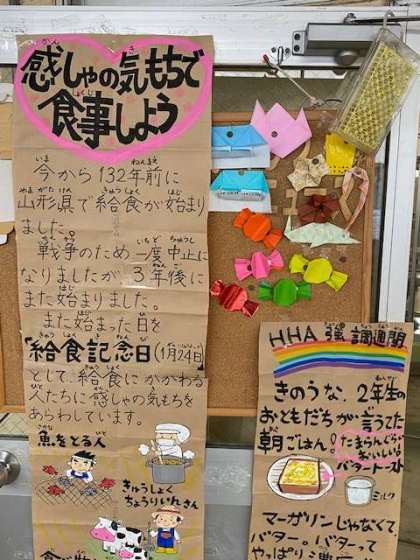 感しゃの気もちで
食事しよう
今から132年前に
山形県で給食が始まり
ました。
戦争のため一度中止に
なりましたが3年後に
また始まりました。
また始まった日を
「給食記念日(1月24日)
として、給食にかかわる
人たちに感しゃの気もちを
あらわしています。
魚をとる人
きゅうしょく
ちょうりいんさん
HHA 強調週間
きのうな、2年生の
おともだちが言うてた
朝ごはん!たまらんぐらい
おいしい!
バタートースト
ミルク
マーガリンじゃなくて、
バター。バターって
やっぱり